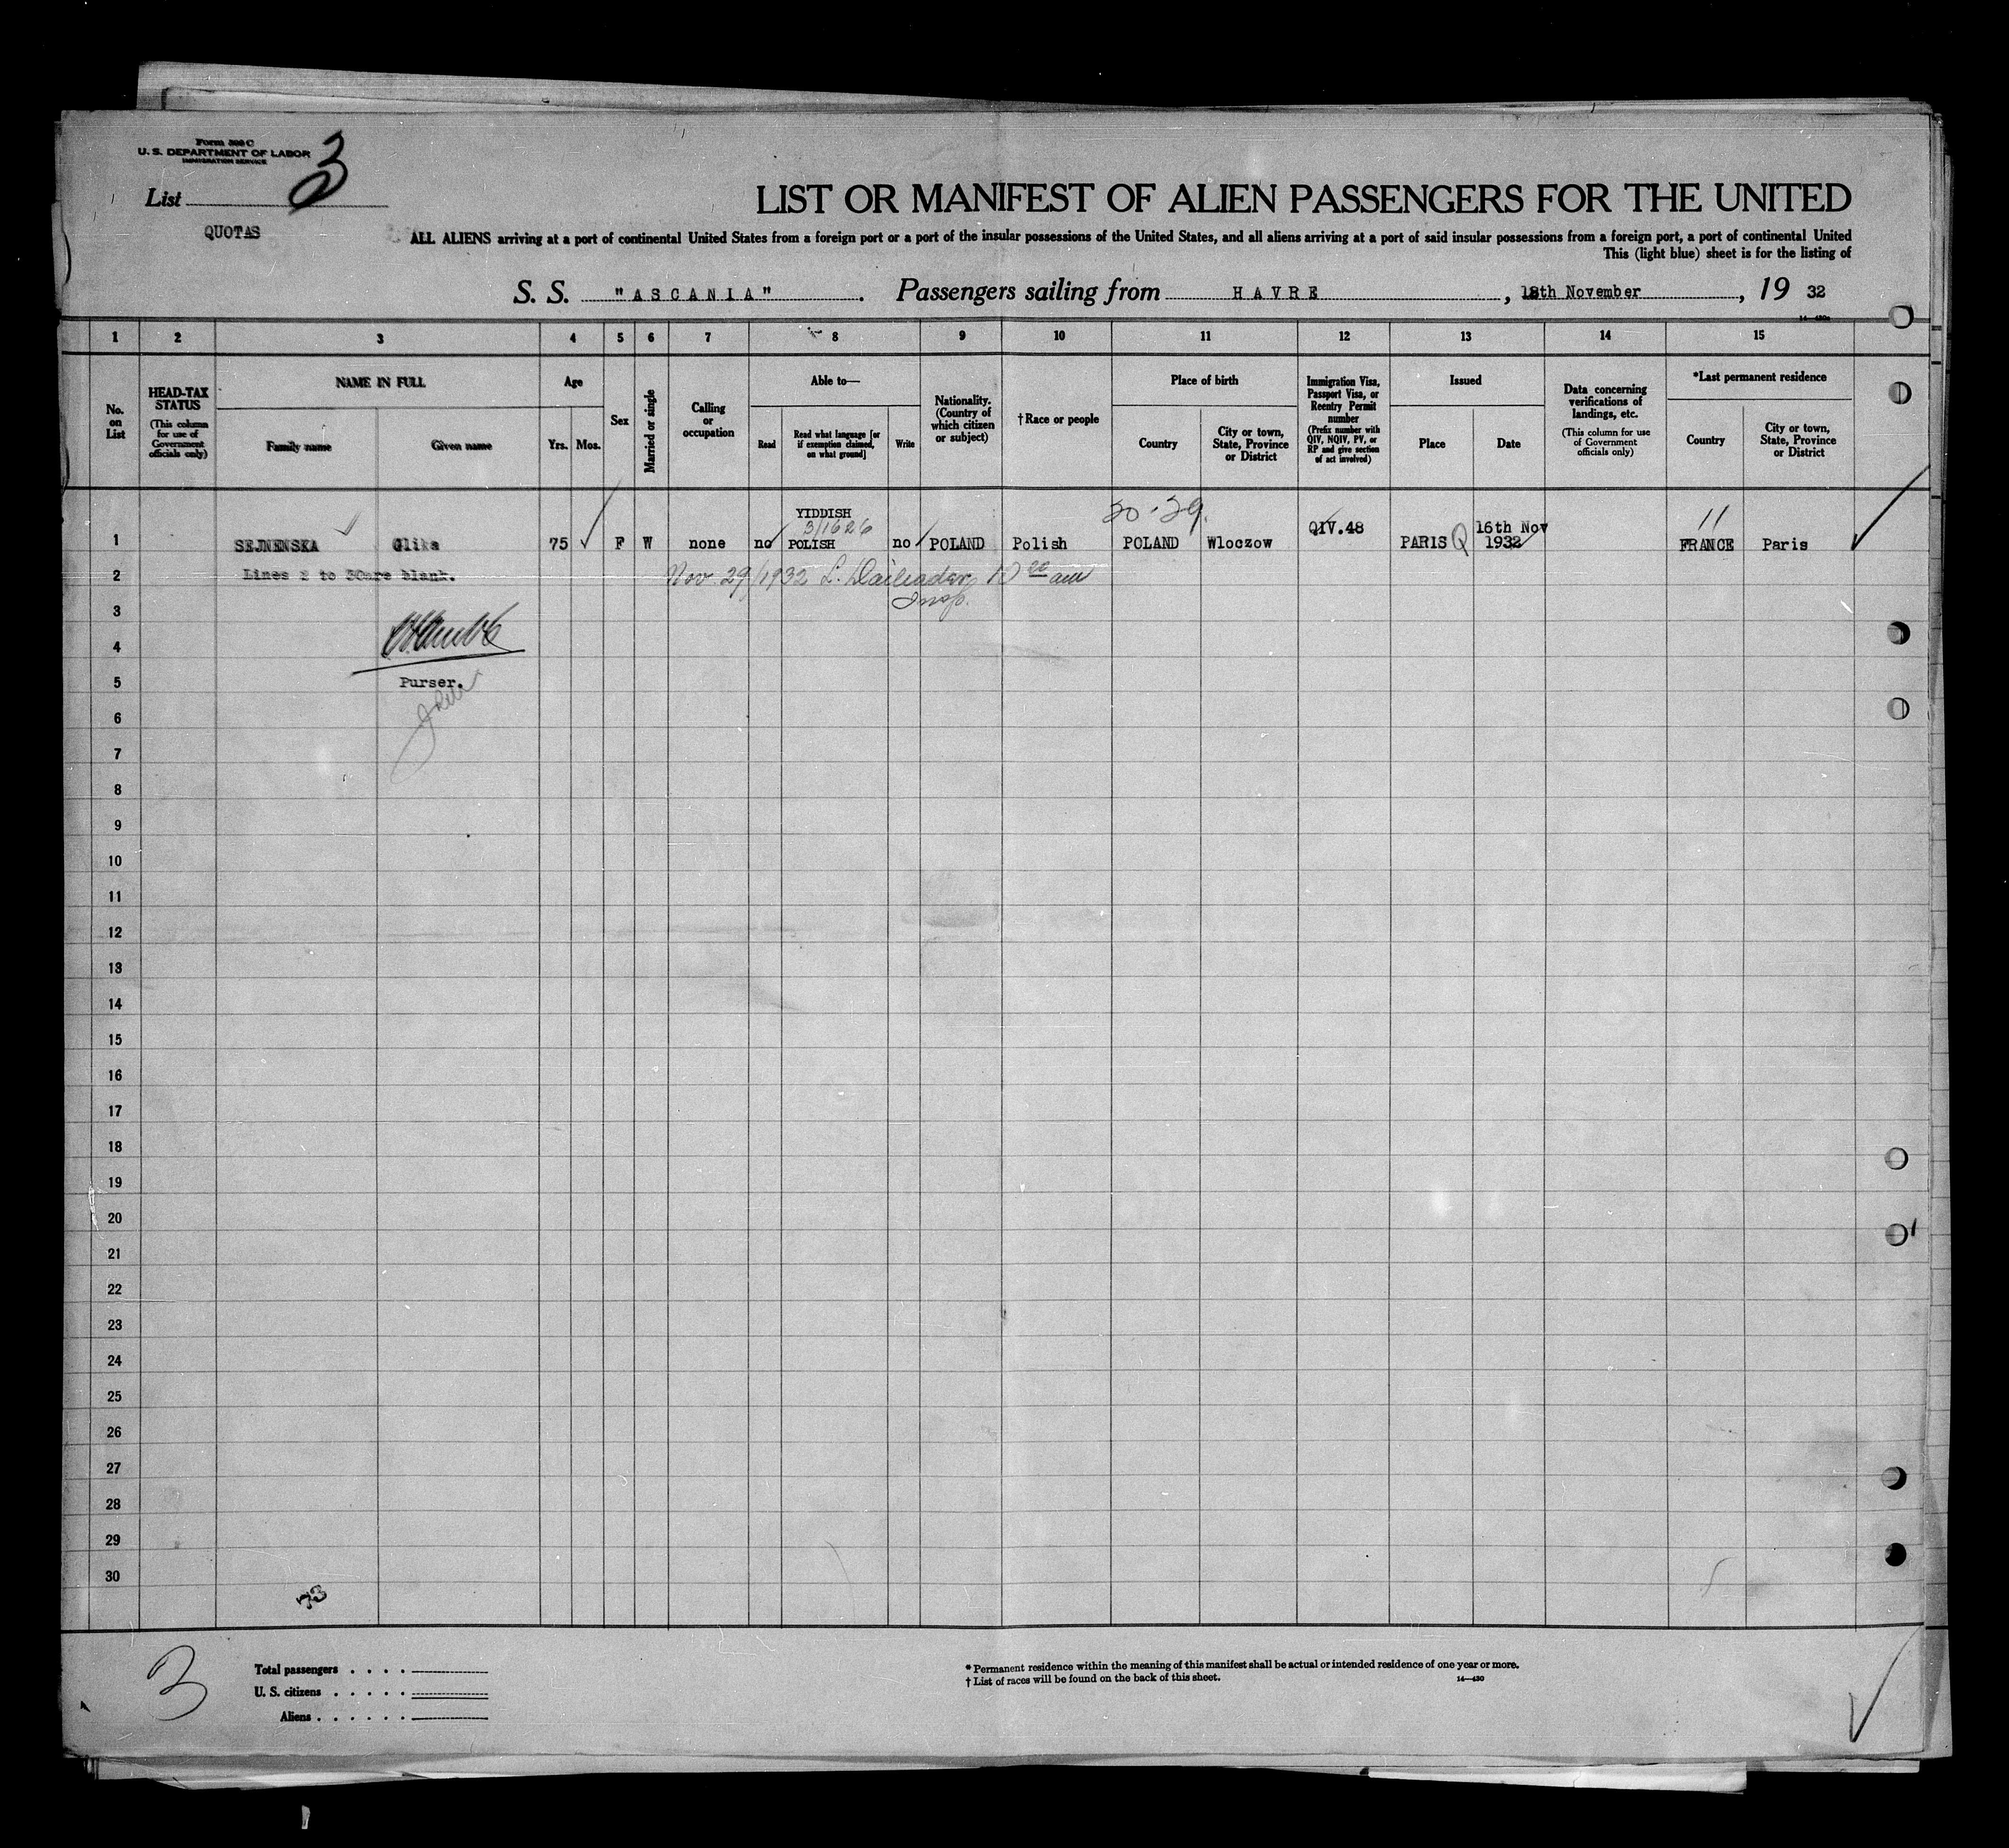 Form 500 C
U. S. DEPARTMENT OF LABOR
IMMIGRATION SERVICE
List 3
QUOTAS
LIST OR MANIFEST OF ALIEN PASSENGERS FOR THE UNITED
ALL ALIENS arriving at a port of continental United States from a foreign port or a port of the insular possessions of the United States, and all aliens arriving at a port of said insular possessions from a foreign port, a port of continental United
This (light blue) sheet is for the listing of
S. S. "ASCANIA". Passengers sailing from HAVRE, 18th November, 19 32
1 2 3 4 5 6 7 8 9 10 11 12 13 14 15
No. on List
HEAD-TAX STATUS (This column for use of Government officials only)
NAME IN FULL
Family name Given name
Age
Yrs. Mos.
Sex
Married or single
Calling or occupation
Able to—
Read Read what language [or if exemption claimed, on what ground] Write
Nationality. (Country of which citizen or subject)
†Race or people
Place of birth
Country City or town, State, Province or District
Immigration Visa, Passport Visa, or Reentry Permit number (Prefix number with QIV, NQIV, PV, or RP and give section of act involved)
Issued
Place Date
Data concerning verifications of landings, etc. (This column for use of Government officials only)
*Last permanent residence
Country City or town, State, Province or District
YIDDISH 30-29. 11
3/1626 QIV.48 16th Nov
1 SEJNENSKA Glika 75 F W none no POLISH no POLAND Polish POLAND Wloczow PARIS Q 1932 FRANCE Paris
2 Lines 2 to 30are blank. Nov. 29/1932 L. 10 20 am
Insp.
3
4
5 Purser.
6
7
8
9
10
11
12
13
14
15
16
17
18
19
20
21
22
23
24
25
26
27
28
29
30
73
3
Total passengers . . . .
U. S. citizens . . . . .
Aliens . . . . . .
* Permanent residence within the meaning of this manifest shall be actual or intended residence of one year or more.
† List of races will be found on the back of this sheet. 14—430